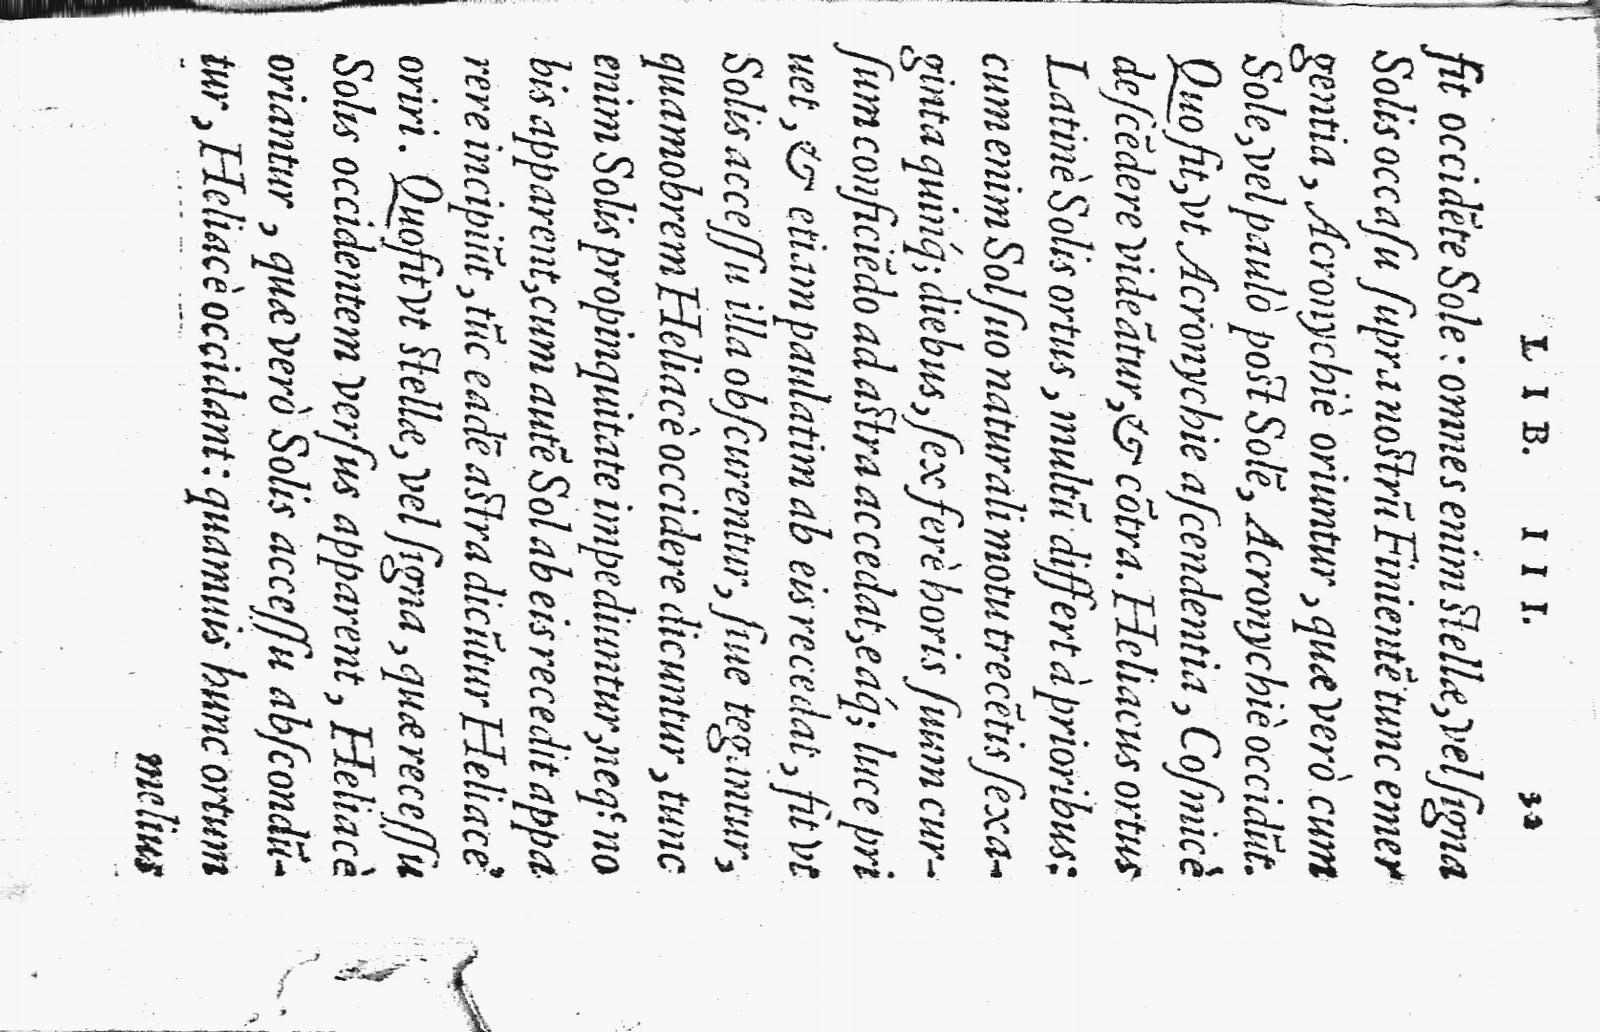 LIB. III. 32
ſit occidẽte Sole: omnes enim ſtellæ, vel ſigna
Solis occaſu ſupra noſtrũ Finientẽ tunc emer
gentia, Acronychiè oriuntur, quæ verò cum
Sole, vel paulò poſt Solẽ, Acronychiè occidũt.
Quo fit, vt Acronychie aſcendentia, Coſmicè
deſcẽdere videãtur, & cõtra. Heliacus ortus
Latinè Solis ortus, multũ differt à prioribus:
cum enim Sol ſuo naturali motu trecẽtis ſexa-
ginta quinq́; diebus, ſex ferè horis ſuum cur-
ſum conficiẽdo ad aſtra accedat, eáq́; luce pri
uet, & etiam paulatim ab eis recedat, fit vt
Solis acceſſu illa obſcurentur, ſiue tegantur,
quamobrem Heliacè occidere dicuntur, tunc
enim Solis propinquitate impediuntur, neq́; no
bis apparent, cum autẽ Sol ab eis recedit appa
rere incipiũt, tũc eadẽ aſtra dicũtur Heliacè
oriri. Quo fit vt ſtellæ, vel ſigna, quæ receſſu
Solis occidentem verſus apparent, Heliacè
oriantur, quæ verò Solis acceſſu abſcondũ-
tur, Heliacè occidant: quamuis hunc ortum
melius